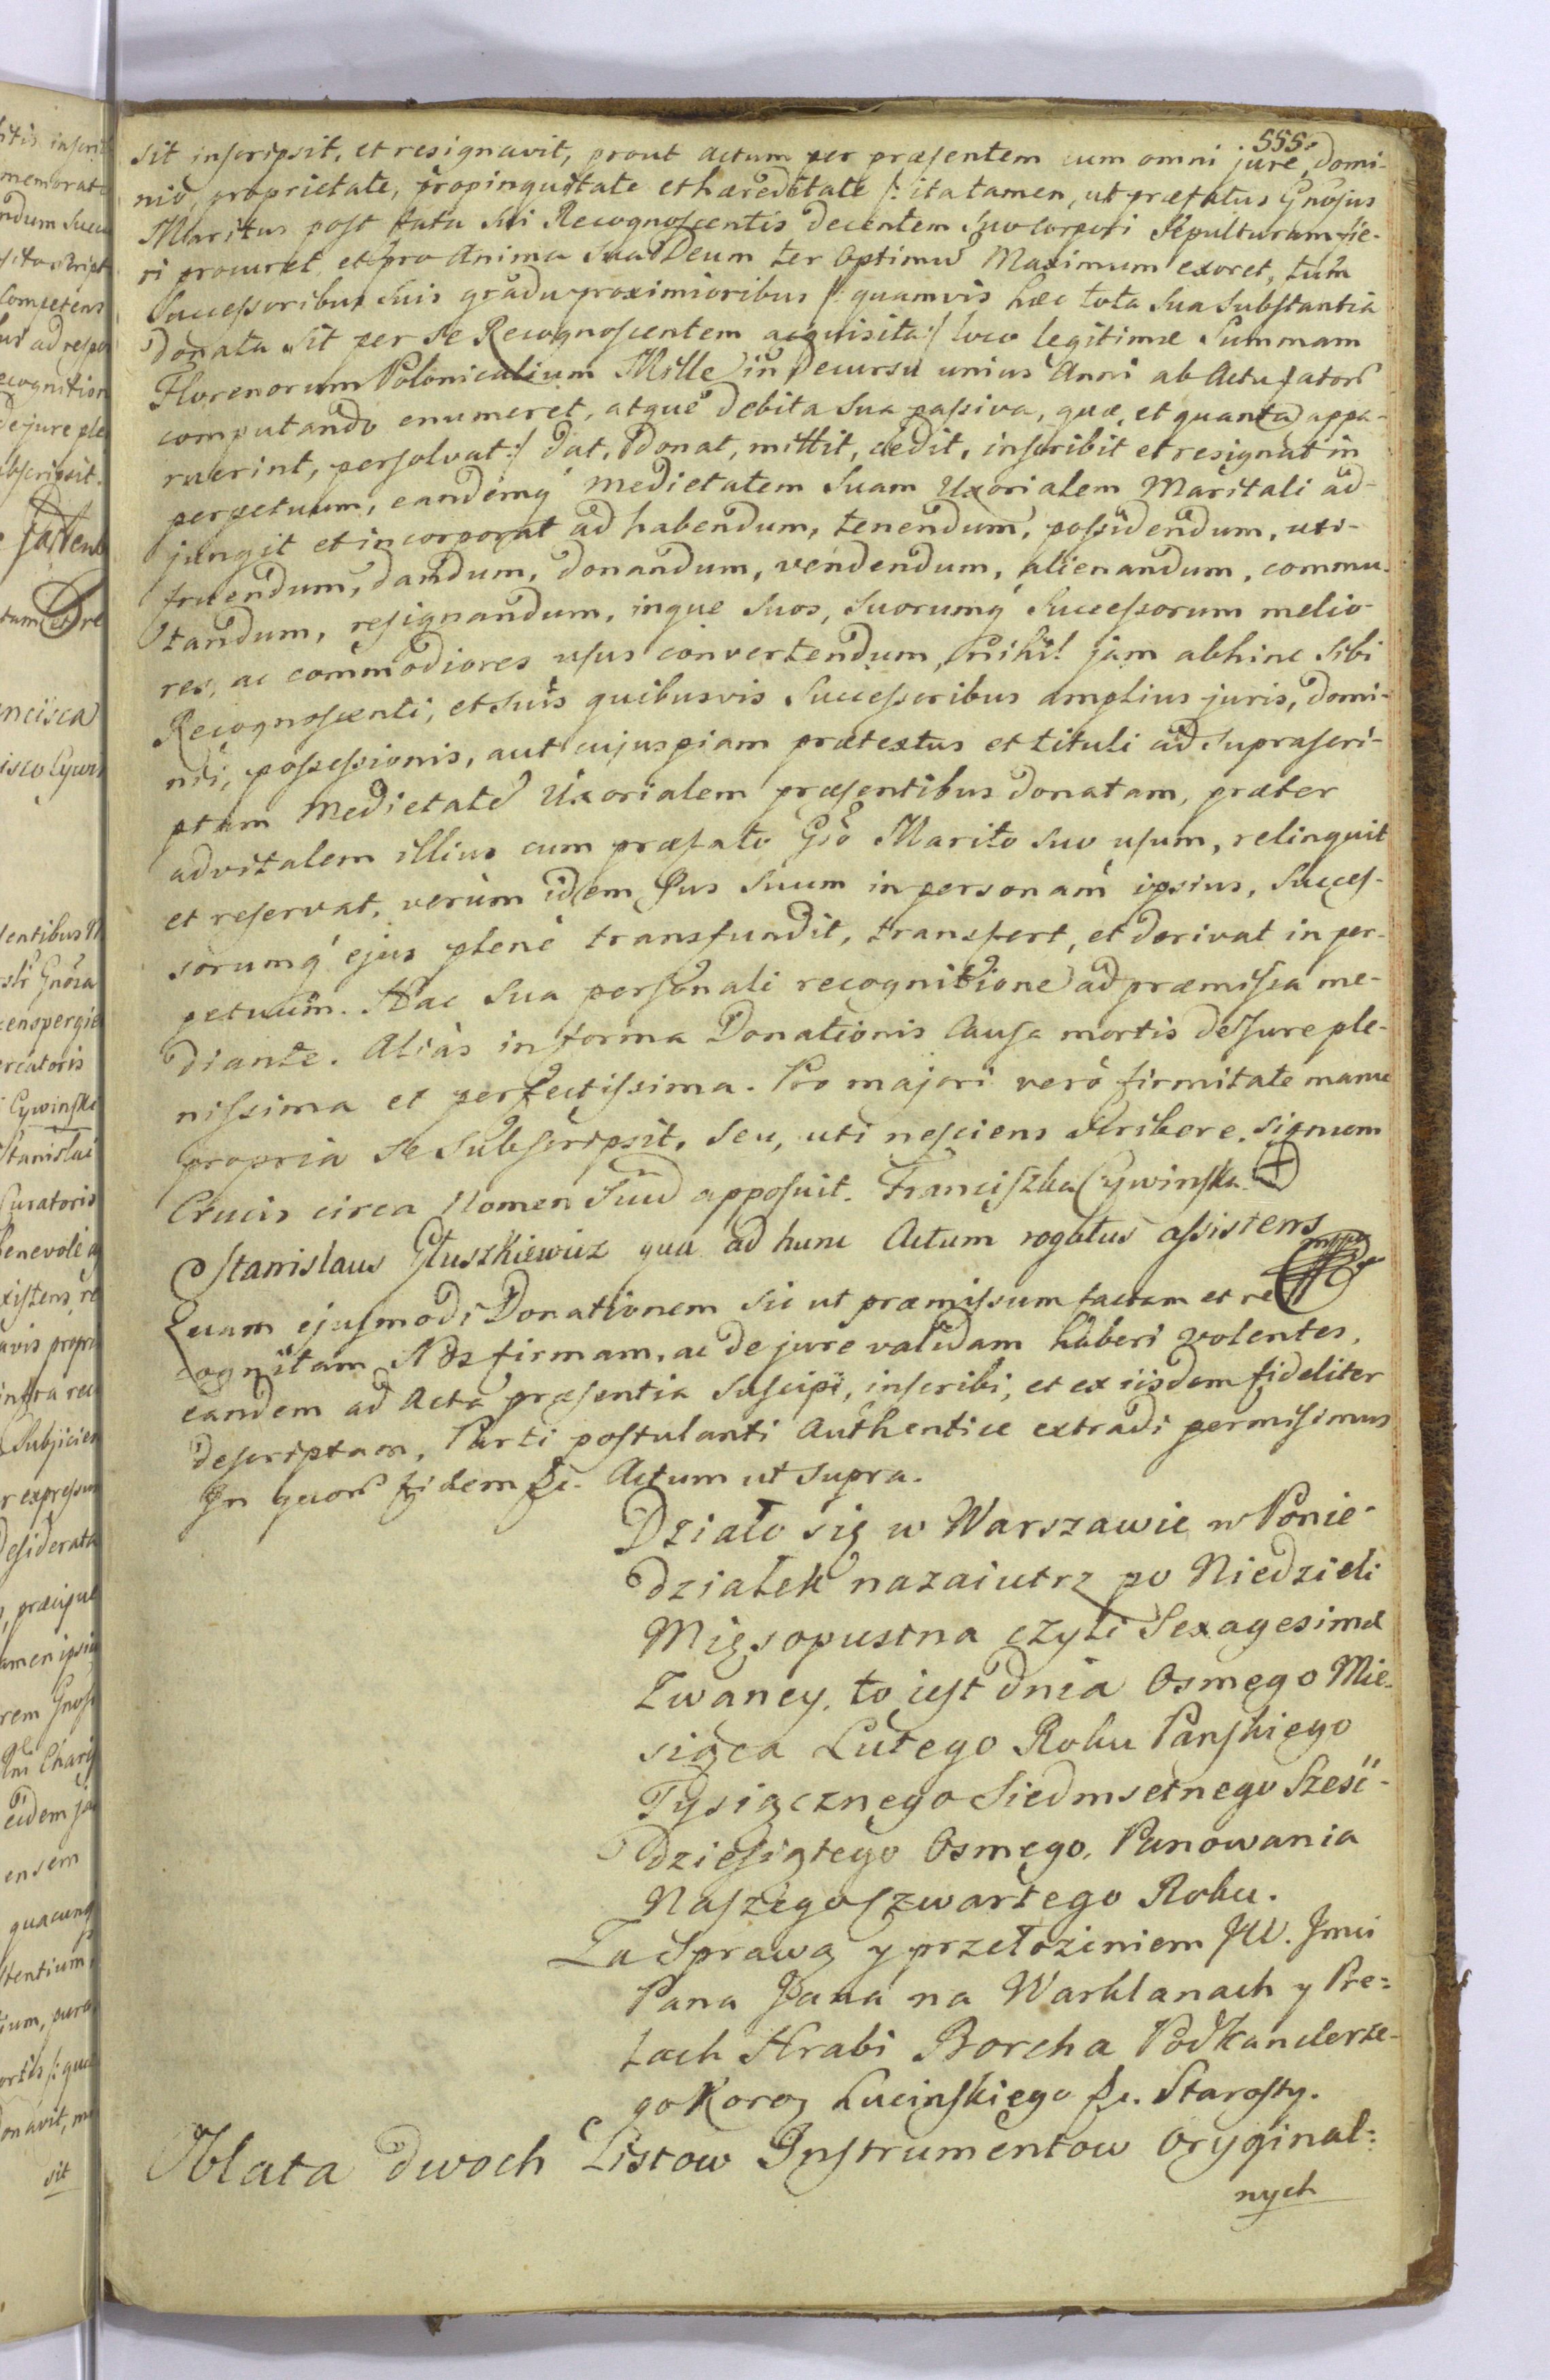 555.
sit inscripsit, et resignavit, prout actum per præsentem cum omni jure, domi-
nio, proprietate, propinquitate et hæreditate /: ita tamen, ut præfatus Gnosus
Maritus post fata sui Recognoscentis decentem suo corpori Sepulturam fie-
ri procuret, et pro Anima sua Deum ter Optimū Maximum exoret, tum
Successoribus suis gradu proximioribus /: quamvis hæc tota sua substantia
donata sit per se Recognoscentem acquisita :/ loco legitimæ Summam
Florenorum Polonicalium Mille in decursu unius Anni ab Actu
computando enumeret, atque debita sua passiva, quæ, et quanta appa-
ruerint, persolvat :/ dat, donat, mittit, cedit, inscribit et resignat in
perpetuum, eandemq́ medietatem Suam Uxorialem Maritali ad-
jungit et incorporat ad habendum, tenendum, possidendum, uti-
fruendum, dandum, donandum, vendendum, alienandum, commu-
tandum, resignandum, inque suos, suorumq́ Successorum melio-
res, ac commodiores usus convertendum, nihil jam abhinc sibi
Recognoscenti, et suis quibusvis Successoribus amplius juris, domi-
nii, possessionis, aut cujuspiam prætextus et tituli ad suprascri-
ptam medietatē Uxorialem præsentibus donatam, præter
advitalem illius cum præfato Gso Marito suo usum, relinquit
et reservat, verùm idem Jus suum in personam ipsius, Succes-
sorumq́ ejus plenè transfundit, transfert, et derivat in per-
petuum. Hac sua personali recognitione ad præmissa me-
diante. Aliàs in forma Donationis causa mortis de Jure ple-
nissima et perfectissima. Pro majori verò firmitate manu
propria se subscripsit, seu, uti nesciens scribere, signum
Crucis circa Nomen Suū apposuit. Franciszka Cywinska +
Stanislaus Głuszkiewicz qua ad hunc Actum rogatus assistens mppa
Quam ejusmodi Donationem sic ut præmissum factam et re-
cognitam Nos firmam, ac de jure validam haberi volentes,
eandem ad Acta præsentia suscipi, inscribi, et ex iisdem fideliter
descriptam, Parti postulanti Authentice extradi permisimus
In quorū fidem &c. Actum ut supra.
Działo się w Warszawie w Ponie-
działek nazaiutrz po Niedzieli
Mięsopustna czyli Sexagesimæ
Zwaney, to iest dnia Osmego Mie-
siąca Lutego Roku Panskiego
Tysiącznego Siedmsetnego Sześć-
dziesiątego Osmego, Panowania
Naszego czwartego Roku.
Za Sprawą y przełożeniem JW. Jmci
Pana Jana na Warklanach y Pre-
lach Hrabi Borcha Podkanclerze-
go Koroą Lucinskiego &c. Starosty.
Oblata dwoch Listow Instrumentow Oryginal-
nych